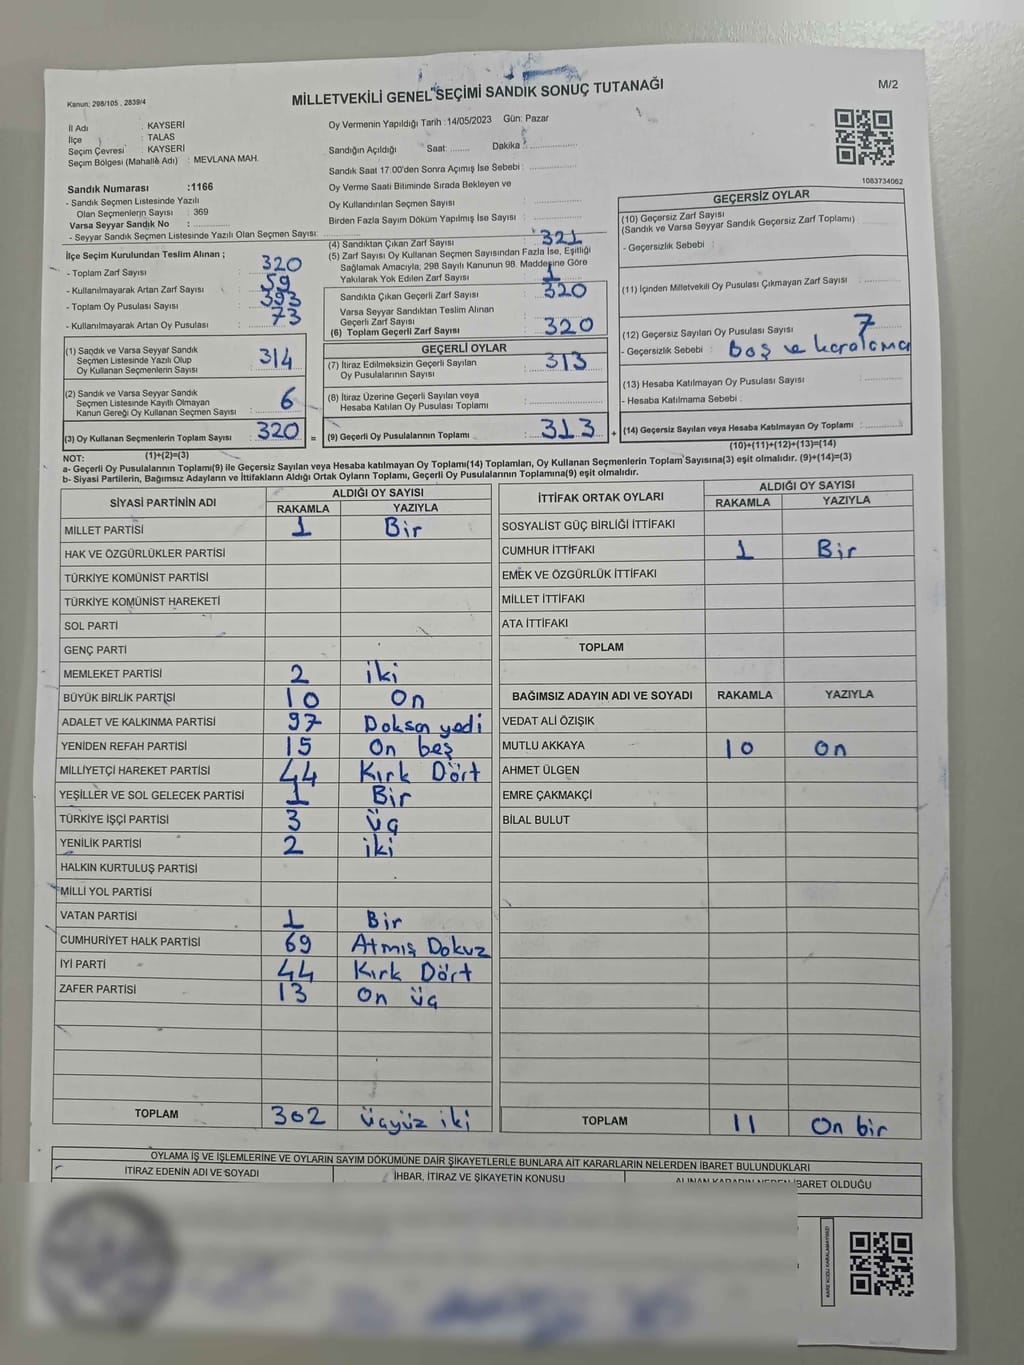 Kanun: 298/105 , 2839/4
MİLLETVEKİLİ GENEL SEÇİMİ SANDIK SONUÇ TUTANAĞI
M/2
İl Adı : KAYSERİ
İlçe : TALAS
Seçim Çevresi : KAYSERİ
Seçim Bölgesi (Mahalle Adı) : MEVLANA MAH.
Oy Vermenin Yapıldığı Tarih :14/05/2023 Gün: Pazar
Sandığın Açıldığı Saat: ........ Dakika : ................
Sandık Saat 17:00'den Sonra Açımış İse Sebebi : ................
Oy Verme Saati Bitiminde Sırada Bekleyen ve
Oy Kullandırılan Seçmen Sayısı : ................
Birden Fazla Sayım Döküm Yapılmış İse Sayısı : ................
1083734062
Sandık Numarası :1166
- Sandık Seçmen Listesinde Yazılı
Olan Seçmenlerin Sayısı : 369
Varsa Seyyar Sandık No : ................
- Seyyar Sandık Seçmen Listesinde Yazılı Olan Seçmen Sayısı: ................
İlçe Seçim Kurulundan Teslim Alınan ;
- Toplam Zarf Sayısı : 320
- Kullanılmayarak Artan Zarf Sayısı : 59
- Toplam Oy Pusulası Sayısı : 393
- Kullanılmayarak Artan Oy Pusulası : 73
(1) Sandık ve Varsa Seyyar Sandık
Seçmen Listesinde Yazılı Olup
Oy Kullanan Seçmenlerin Sayısı : 314
(2) Sandık ve Varsa Seyyar Sandık
Seçmen Listesinde Kayıtlı Olmayan
Kanun Gereği Oy Kullanan Seçmen Sayısı : 6
(3) Oy Kullanan Seçmenlerin Toplam Sayısı : 320 =
(4) Sandıktan Çıkan Zarf Sayısı : 321
(5) Zarf Sayısı Oy Kullanan Seçmen Sayısından Fazla İse, Eşitliği
Sağlamak Amacıyla, 298 Sayılı Kanunun 98. Maddesine Göre
Yakılarak Yok Edilen Zarf Sayısı : 1
Sandıkta Çıkan Geçerli Zarf Sayısı : 320
Varsa Seyyar Sandıktan Teslim Alınan
Geçerli Zarf Sayısı : ................
(6) Toplam Geçerli Zarf Sayısı : 320
GEÇERLİ OYLAR
(7) İtiraz Edilmeksizin Geçerli Sayılan
Oy Pusulalarının Sayısı : 313
(8) İtiraz Üzerine Geçerli Sayılan veya
Hesaba Katılan Oy Pusulası Toplamı : ................
(9) Geçerli Oy Pusulalarının Toplamı : 313 +
GEÇERSİZ OYLAR
(10) Geçersiz Zarf Sayısı
(Sandık ve Varsa Seyyar Sandık Geçersiz Zarf Toplamı)
- Geçersizlik Sebebi :
(11) İçinden Milletvekili Oy Pusulası Çıkmayan Zarf Sayısı : ................
(12) Geçersiz Sayılan Oy Pusulası Sayısı : 7
- Geçersizlik Sebebi : Boş ve karalama
(13) Hesaba Katılmayan Oy Pusulası Sayısı : ................
- Hesaba Katılmama Sebebi :
(14) Geçersiz Sayılan veya Hesaba Katılmayan Oy Toplamı : ................
(10)+(11)+(12)+(13)=(14)
NOT: (1)+(2)=(3)
a- Geçerli Oy Pusulalarının Toplamı(9) ile Geçersiz Sayılan veya Hesaba katılmayan Oy Toplamı(14) Toplamları, Oy Kullanan Seçmenlerin Toplam Sayısına(3) eşit olmalıdır. (9)+(14)=(3)
b- Siyasi Partilerin, Bağımsız Adayların ve İttifakların Aldığı Ortak Oyların Toplamı, Geçerli Oy Pusulalarının Toplamına(9) eşit olmalıdır.
SİYASİ PARTİNİN ADI ALDIĞI OY SAYISI
RAKAMLA YAZIYLA
MİLLET PARTİSİ 1 Bir
HAK VE ÖZGÜRLÜKLER PARTİSİ
TÜRKİYE KOMÜNİST PARTİSİ
TÜRKİYE KOMÜNİST HAREKETİ
SOL PARTİ
GENÇ PARTİ
MEMLEKET PARTİSİ 2 iki
BÜYÜK BİRLİK PARTİSİ 10 On
ADALET VE KALKINMA PARTİSİ 97 Doksan yedi
YENİDEN REFAH PARTİSİ 15 On beş
MİLLİYETÇİ HAREKET PARTİSİ 44 Kırk Dört
YEŞİLLER VE SOL GELECEK PARTİSİ 1 Bir
TÜRKİYE İŞÇİ PARTİSİ 3 üç
YENİLİK PARTİSİ 2 iki
HALKIN KURTULUŞ PARTİSİ
MİLLİ YOL PARTİSİ
VATAN PARTİSİ 1 Bir
CUMHURİYET HALK PARTİSİ 69 Atmış Dokuz
İYİ PARTİ 44 Kırk Dört
ZAFER PARTİSİ 13 On üç
TOPLAM 302 üçyüz iki
İTTİFAK ORTAK OYLARI ALDIĞI OY SAYISI
RAKAMLA YAZIYLA
SOSYALİST GÜÇ BİRLİĞİ İTTİFAKI
CUMHUR İTTİFAKI 1 Bir
EMEK VE ÖZGÜRLÜK İTTİFAKI
MİLLET İTTİFAKI
ATA İTTİFAKI
TOPLAM
BAĞIMSIZ ADAYIN ADI VE SOYADI RAKAMLA YAZIYLA
VEDAT ALİ ÖZIŞIK
MUTLU AKKAYA 10 On
AHMET ÜLGEN
EMRE ÇAKMAKÇİ
BİLAL BULUT
TOPLAM 11 On bir
OYLAMA İŞ VE İŞLEMLERİNE VE OYLARIN SAYIM DÖKÜMÜNE DAİR ŞİKAYETLERLE BUNLARA AİT KARARLARIN NELERDEN İBARET BULUNDUKLARI
İTİRAZ EDENİN ADI VE SOYADI İHBAR, İTİRAZ VE ŞİKAYETİN KONUSU ALINAN KARARIN NEDEN İBARET OLDUĞU
KARE KODU KARALAMAYINIZ!